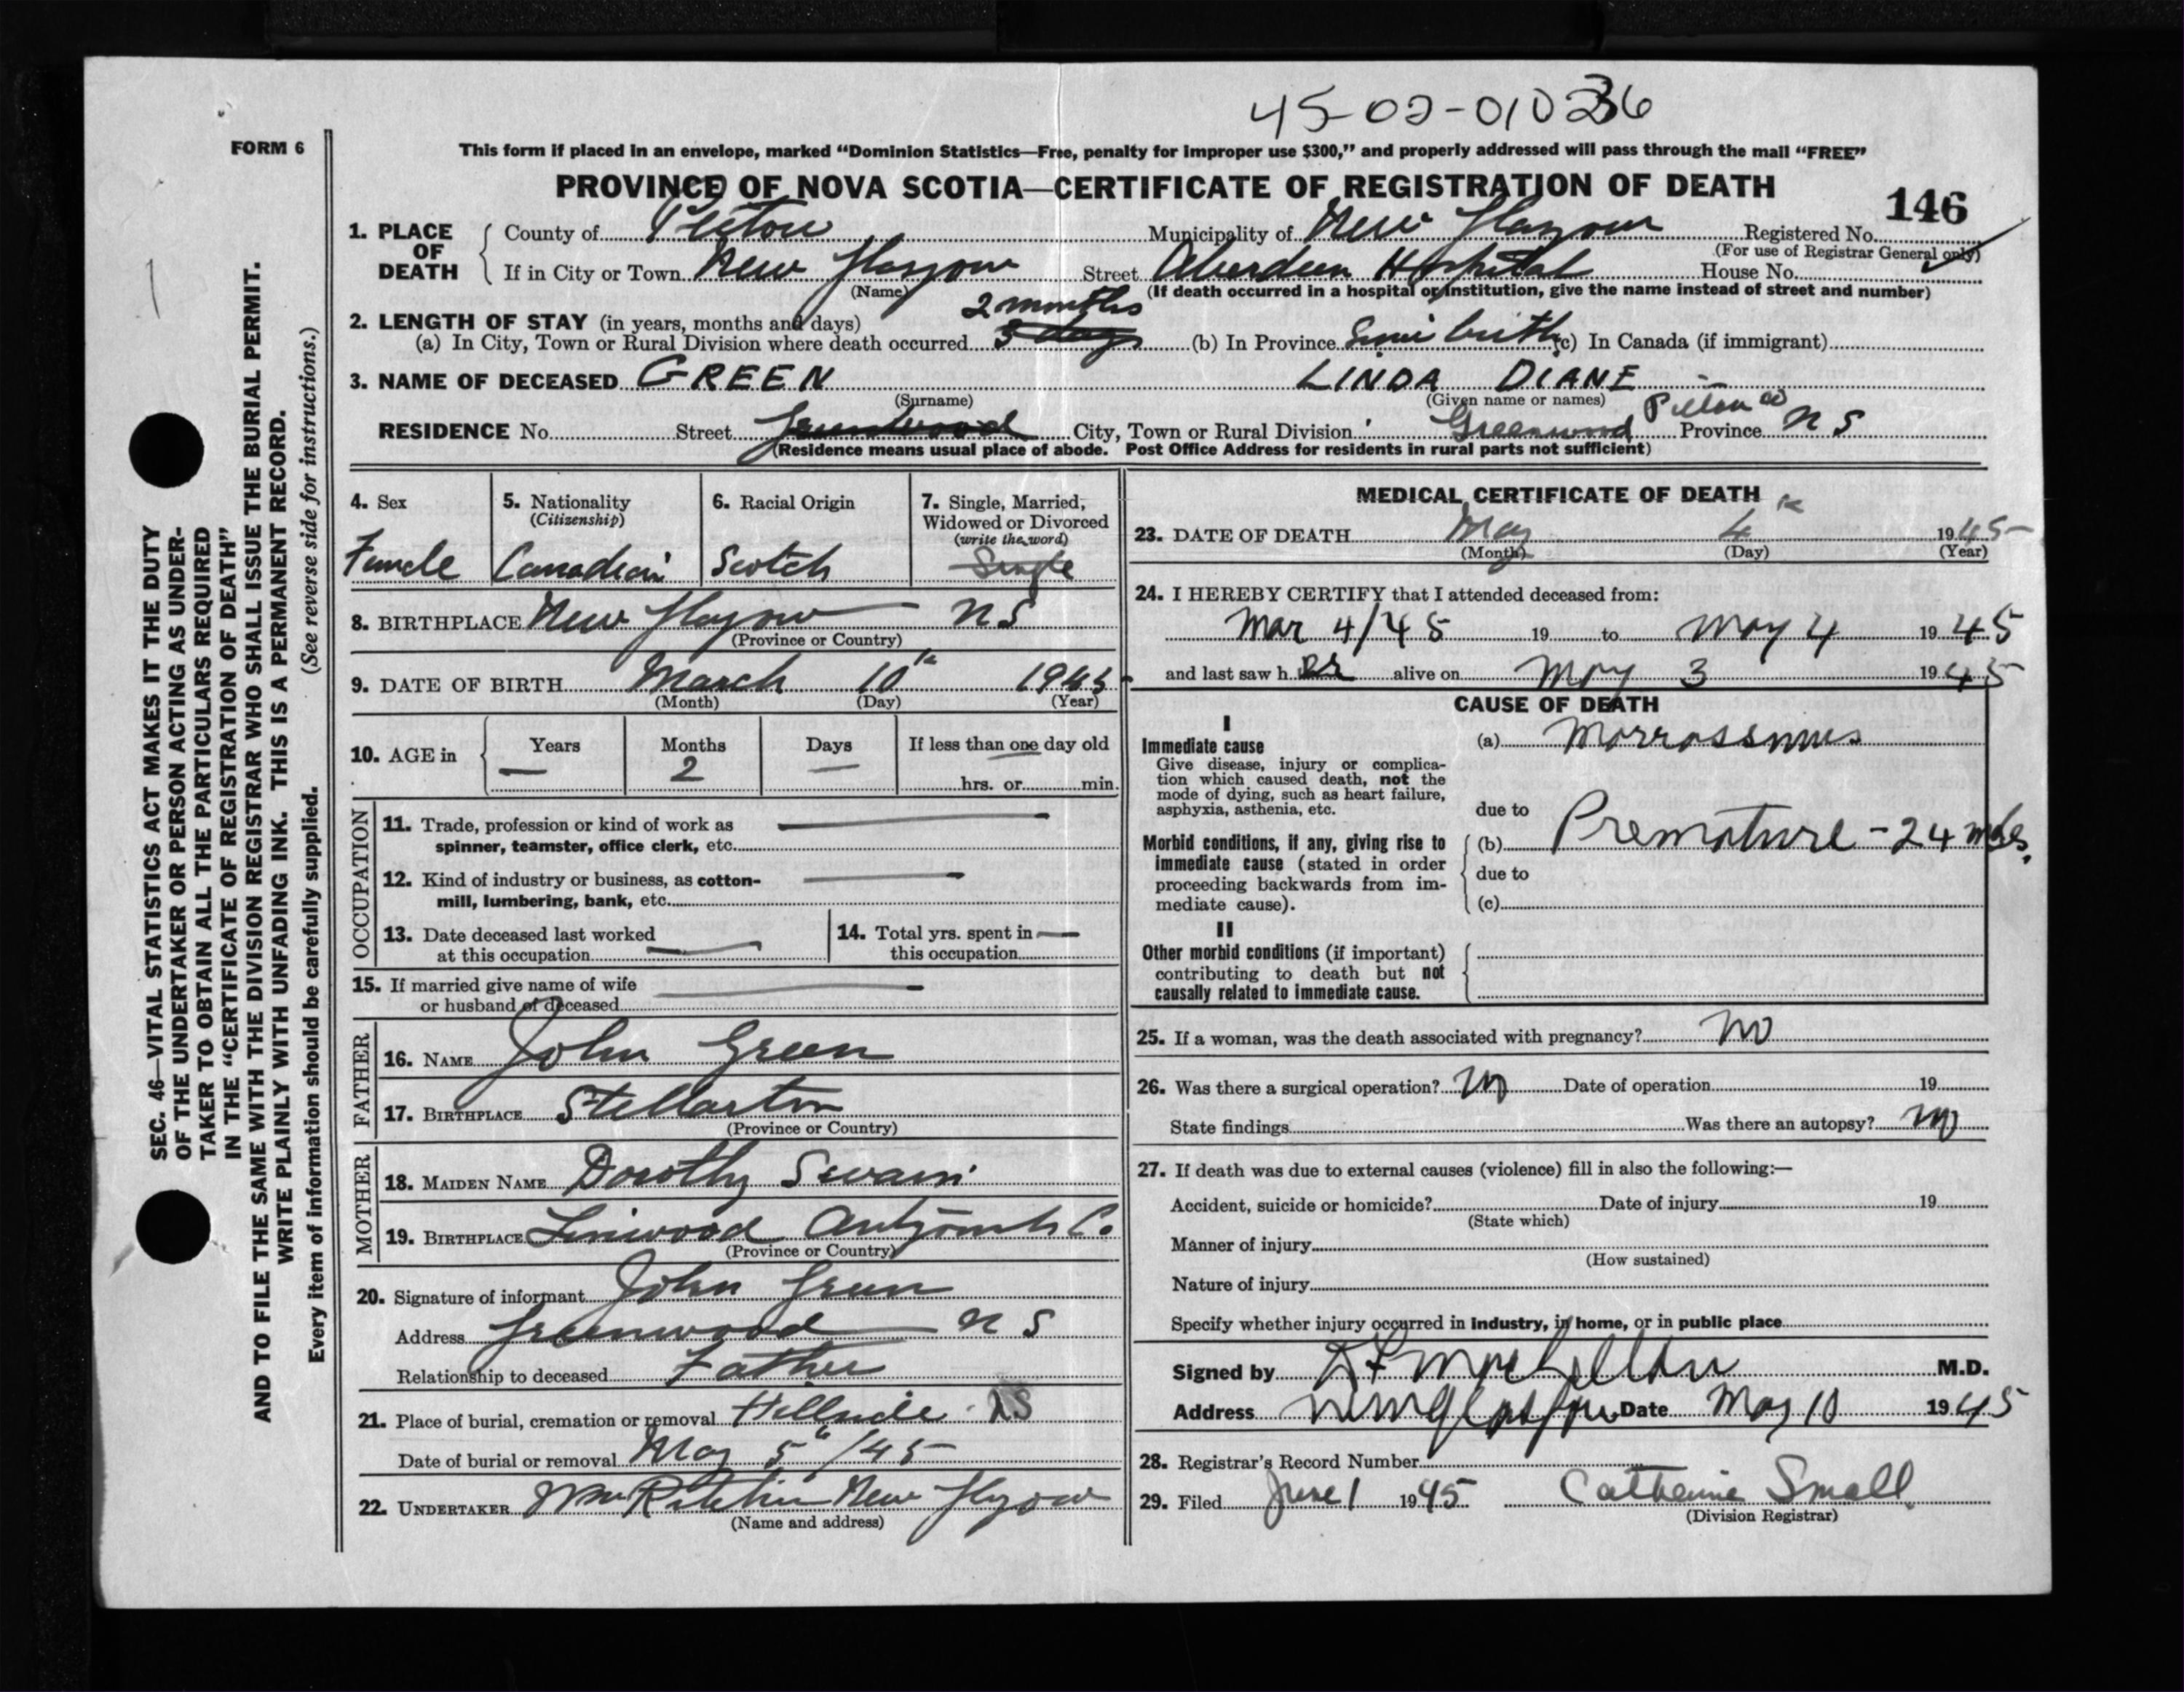 45-02-01036
FORM 6
This form if placed in an envelope, marked "Dominion Statistics—Free, penalty for improper use $300," and properly addressed will pass through the mail "FREE"
PROVINCE OF NOVA SCOTIA—CERTIFICATE OF REGISTRATION OF DEATH
146
1. PLACE OF DEATH
County of Pictou Municipality of New Glasgow Registered No.
(For use of Registrar General only)
If in City or Town New Glasgow Street Aberdeen Hospital House No.
(Name) (If death occurred in a hospital or institution, give the name instead of street and number)
2. LENGTH OF STAY (in years, months and days) 2 months
(a) In City, Town or Rural Division where death occurred 3 days (b) In Province Since birth (c) In Canada (if immigrant)
3. NAME OF DECEASED GREEN LINDA DIANE
(Surname) (Given name or names)
RESIDENCE No. Street Greenwood City, Town or Rural Division Greenwood Pictou Co Province N S
(Residence means usual place of abode. Post Office Address for residents in rural parts not sufficient)
4. Sex Female
5. Nationality (Citizenship) Canadian
6. Racial Origin Scotch
7. Single, Married, Widowed or Divorced (write the word) Single
8. BIRTHPLACE New Glasgow N S
(Province or Country)
9. DATE OF BIRTH March 10th 1945
(Month) (Day) (Year)
10. AGE in Years — Months 2 Days — If less than one day old
hrs. or min.
OCCUPATION
11. Trade, profession or kind of work as
spinner, teamster, office clerk, etc.
12. Kind of industry or business, as cotton-
mill, lumbering, bank, etc.
13. Date deceased last worked
at this occupation
14. Total yrs. spent in
this occupation
15. If married give name of wife
or husband of deceased
FATHER
16. NAME John Green
17. BIRTHPLACE Stellarton
(Province or Country)
MOTHER
18. MAIDEN NAME Dorothy Swain
19. BIRTHPLACE Linwood Antigonish Co.
(Province or Country)
20. Signature of informant John Green
Address Greenwood N S
Relationship to deceased Father
21. Place of burial, cremation or removal Hillside NS
Date of burial or removal May 5"/45
22. UNDERTAKER Wm Ritchie New Glasgow
(Name and address)
MEDICAL CERTIFICATE OF DEATH
23. DATE OF DEATH May 4th 1945
(Month) (Day) (Year)
24. I HEREBY CERTIFY that I attended deceased from:
Mar 4/45 19 to May 4 1945
and last saw her alive on May 3 1945
CAUSE OF DEATH
I
Immediate cause
Give disease, injury or complica-
tion which caused death, not the
mode of dying, such as heart failure,
asphyxia, asthenia, etc.
(a) Morrossmus
due to
Morbid conditions, if any, giving rise to
immediate cause (stated in order
proceeding backwards from im-
mediate cause).
(b) Premature - 24
due to
(c)
II
Other morbid conditions (if important)
contributing to death but not
causally related to immediate cause.
25. If a woman, was the death associated with pregnancy? No
26. Was there a surgical operation? No Date of operation 19
State findings Was there an autopsy? No
27. If death was due to external causes (violence) fill in also the following:—
Accident, suicide or homicide? Date of injury 19
(State which)
Manner of injury
(How sustained)
Nature of injury
Specify whether injury occurred in industry, in home, or in public place
Signed by M.D.
Address New Glasgow Date May 10 1945
28. Registrar's Record Number
29. Filed June 1 1945 Catherine Small
(Division Registrar)
SEC. 46—VITAL STATISTICS ACT MAKES IT THE DUTY
OF THE UNDERTAKER OR PERSON ACTING AS UNDER-
TAKER TO OBTAIN ALL THE PARTICULARS REQUIRED
IN THE "CERTIFICATE OF REGISTRATION OF DEATH"
AND TO FILE THE SAME WITH THE DIVISION REGISTRAR WHO SHALL ISSUE THE BURIAL PERMIT.
WRITE PLAINLY WITH UNFADING INK. THIS IS A PERMANENT RECORD.
Every item of information should be carefully supplied. (See reverse side for instructions.)